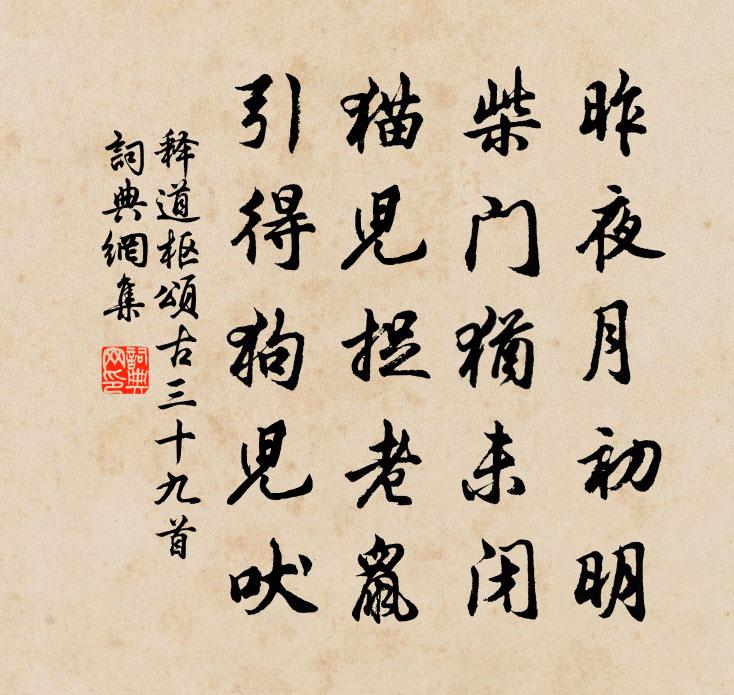 昨夜月初明
柴门猶未闭
猫児捉老鼠
引得狗児吠
释道枢頌古三十九首
詞典網集
詞典网印